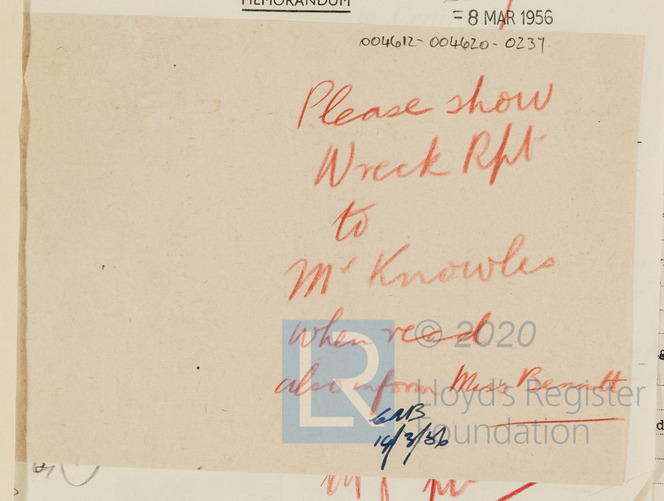 MEMORANDUM
- 8 MAR 1956
004612-004620-0237
Please show
Wreck Rpt
to
Mr Knowles
when read
also inform Miss Bennett
GMB
14/3/56
LR © 2020
Lloyd's Register
Foundation